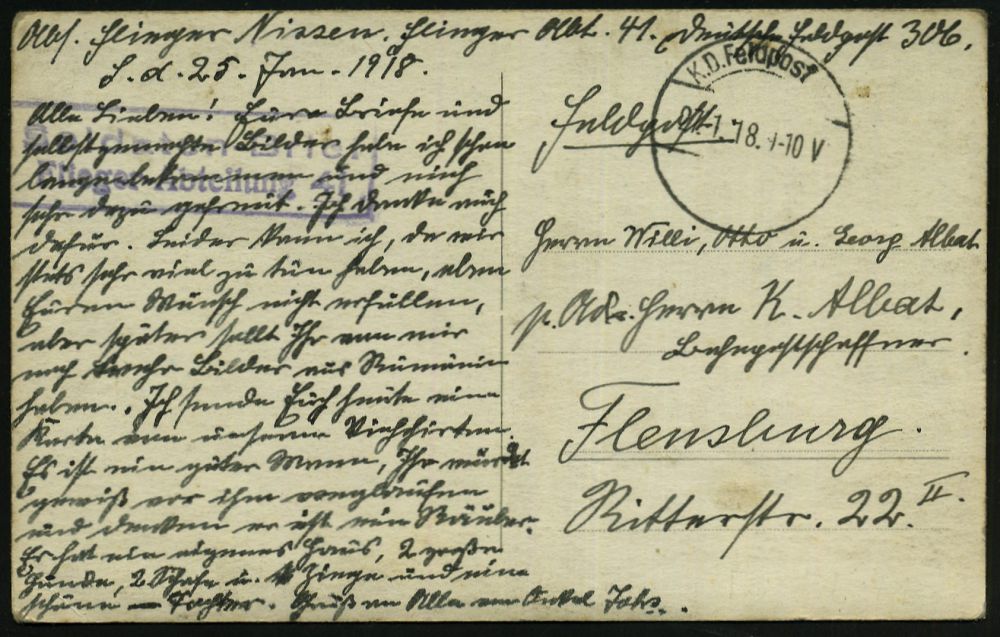 Abs. Flieger Nissen. Flieger Abt. 41. Deutsche Feldpost 306.
d. 25. Jan. 1918.
Alle Lieben! Eure Briefe und
selbstgemachte Bilder habe ich schon
lange bekommen und mich
sehr dazu gefreut. Ich danke euch
dafür. Leider kann ich, da wir
stets sehr viel zu tun haben, eben
Euren Wunsch nicht erfüllen,
aber später sollt Ihr von mir
noch mehr Bilder aus Rumänien
haben. Ich sende Euch heute eine
Karte von unserem Viehhirten.
Es ist ein guter Mann, Ihr würdet
gewiß vor ihm weglaufen
und denken er ist ein Räuber.
Er hat ein eigenes Haus, 2 große
Hunde, 2 Schafe u. 1 Ziege und eine
schöne Tochter. Gruß an Alle von Onkel
Flieger Abteilung 41
K.D. Feldpost
1. 18. 9-10 V
Feldpost
Herrn Willi, Otto u. Georg Albat
p. Adr. Herrn K. Albat,
Bahnpostschaffner.
Flensburg.
Ritterstr. 22. II.